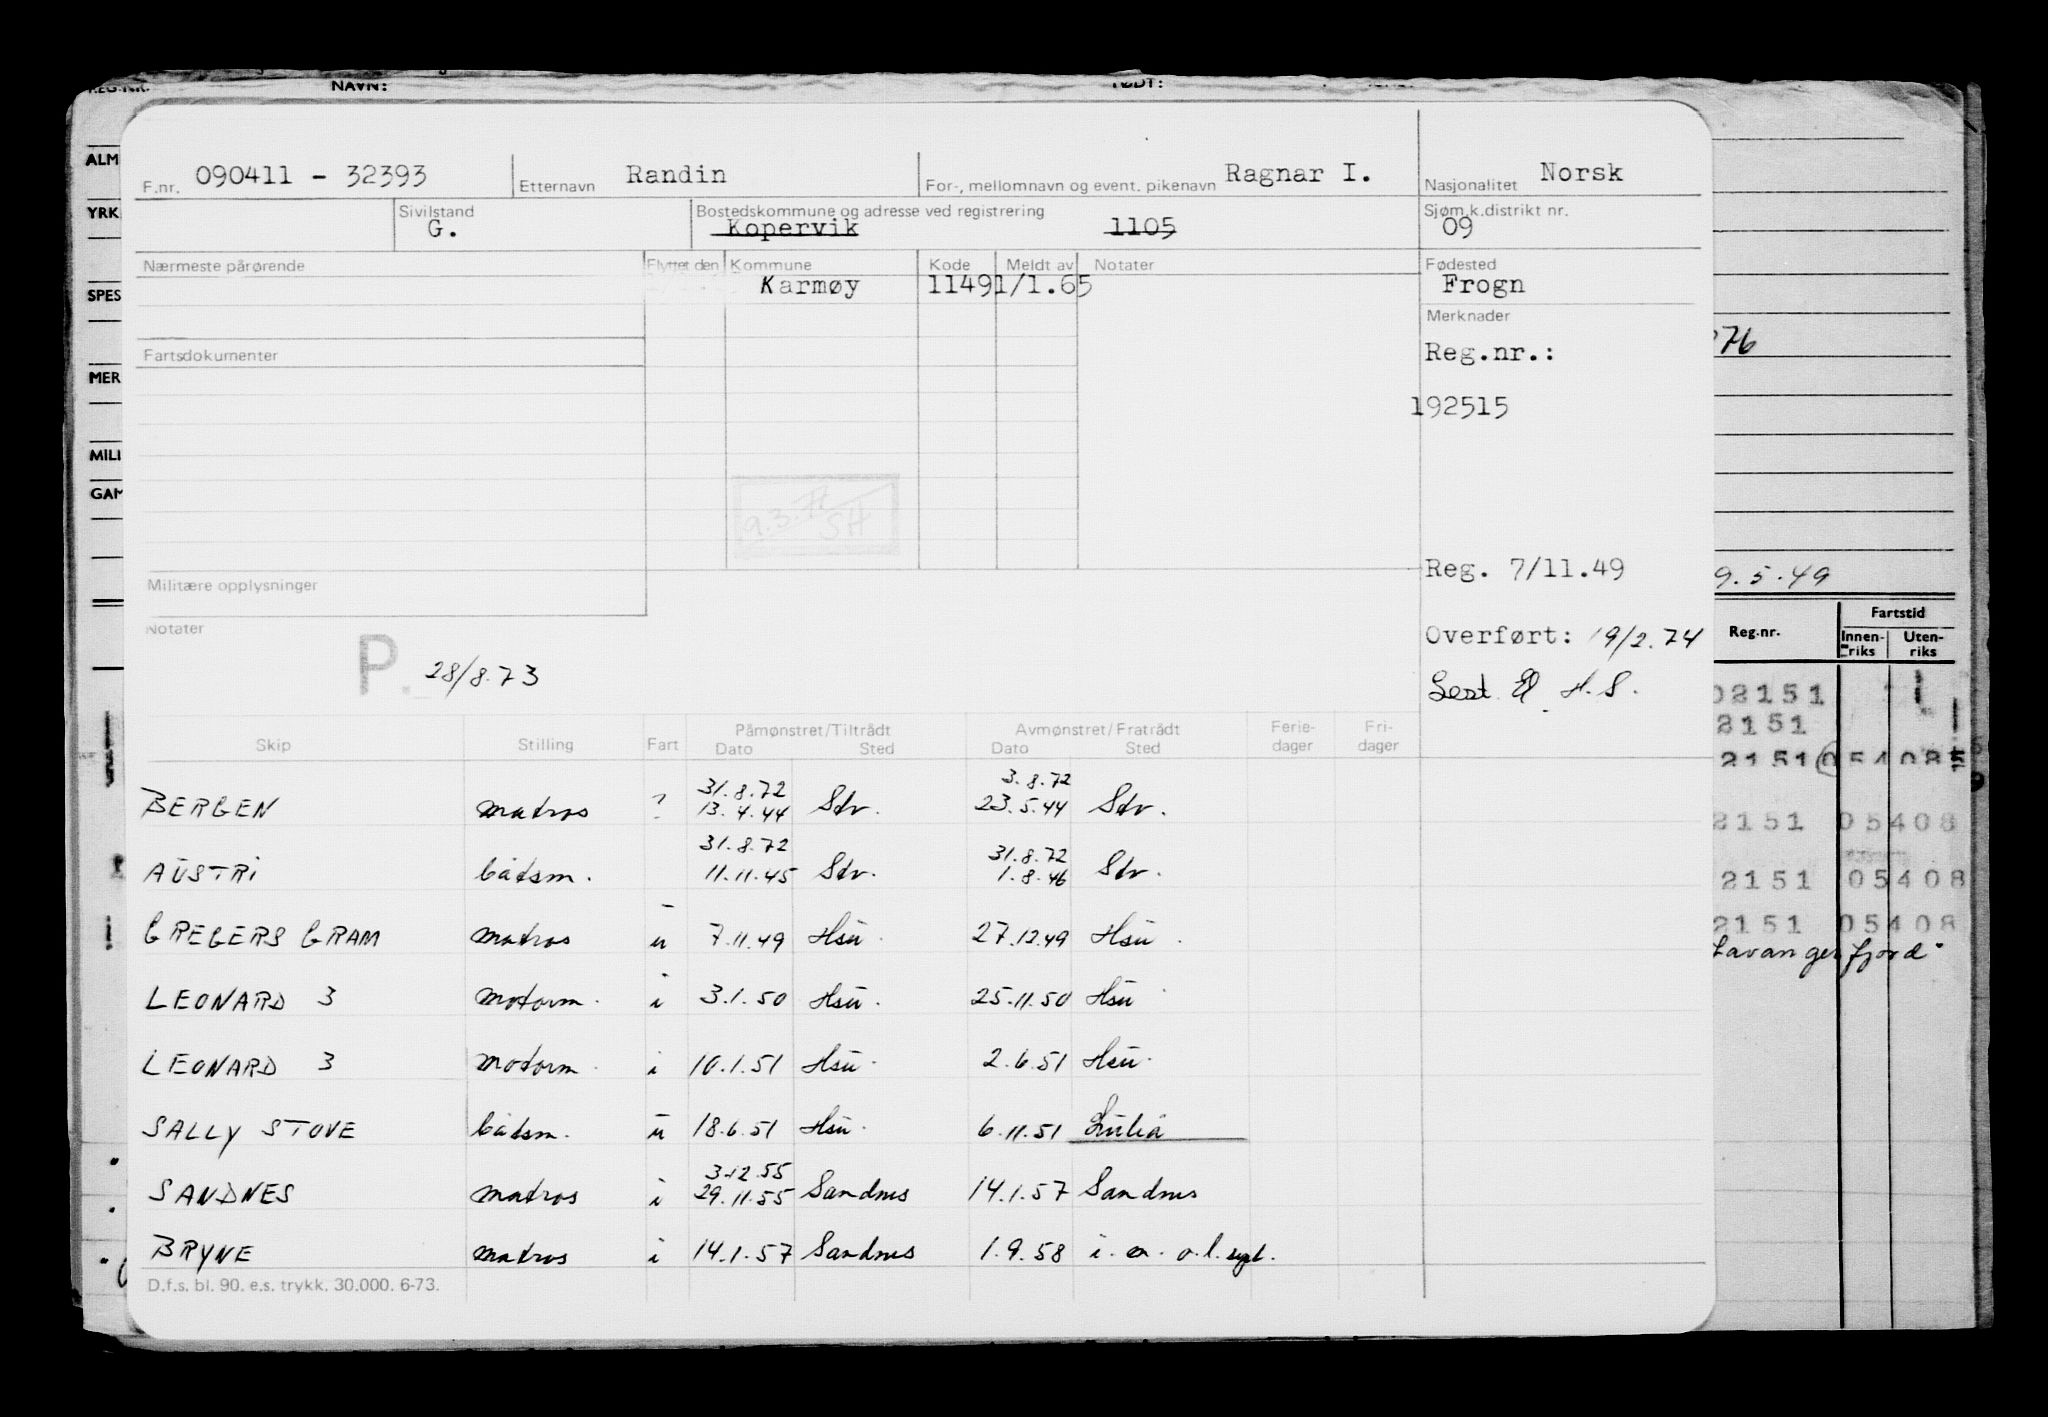 NAVN: FØDT:
F.nr. 090411 - 32393 Etternavn Randin For-, mellomnavn og event. pikenavn Ragnar I. Nasjonalitet Norsk
Sivilstand G. Bostedskommune og adresse ved registrering Kopervik 1105 Sjøm.k.distrikt nr. 09
Nærmeste pårørende Flyttet den Kommune Kode Meldt av Notater Fødested
Karmøy 1149 1/1.65 Frogn
Merknader
Fartsdokumenter Reg.nr.:
192515
9.3.77 SH
Militære opplysninger Reg. 7/11.49
Notater
Overført: 19/2.74
P. 28/8.73
Lest H.S.
Skip Stilling Fart Påmønstret/Tiltrådt Dato Sted Avmønstret/Fratrådt Dato Sted Ferie-dager Fri-dager
31.8.72 3.8.72
BERGEN matros ? 13.4.44 Stv. 23.5.44 Stv.
31.8.72 31.8.72
AUSTRI båtsm. 11.11.45 Stv. 1.8.46 Stv.
GREGERS GRAM matros u 7.11.49 Hsu. 27.12.49 Hsu.
LEONARD 3 motorm. i 3.1.50 Hsu. 25.11.50 Hsu
LEONARD 3 motorm. i 10.1.51 Hsu. 2.6.51 Hsu.
SALLY STOVE båtsm. u 18.6.51 Hsu. 6.11.51 Luleå
3.12.55
SANDNES matros i 29.11.55 Sandnes 14.1.57 Sandnes
BRYNE matros i 14.1.57 Sandnes 1.9.58
D.f.s. bl. 90. e.s. trykk. 30.000. 6-73.
ALM
YRK
SPES
MER
MILI
GAM
76
9.5.49
Reg.nr. Fartstid
Innen-riks Uten-riks
02151
2151
2151 05408
2151 05408
2151 05408
2151 05408